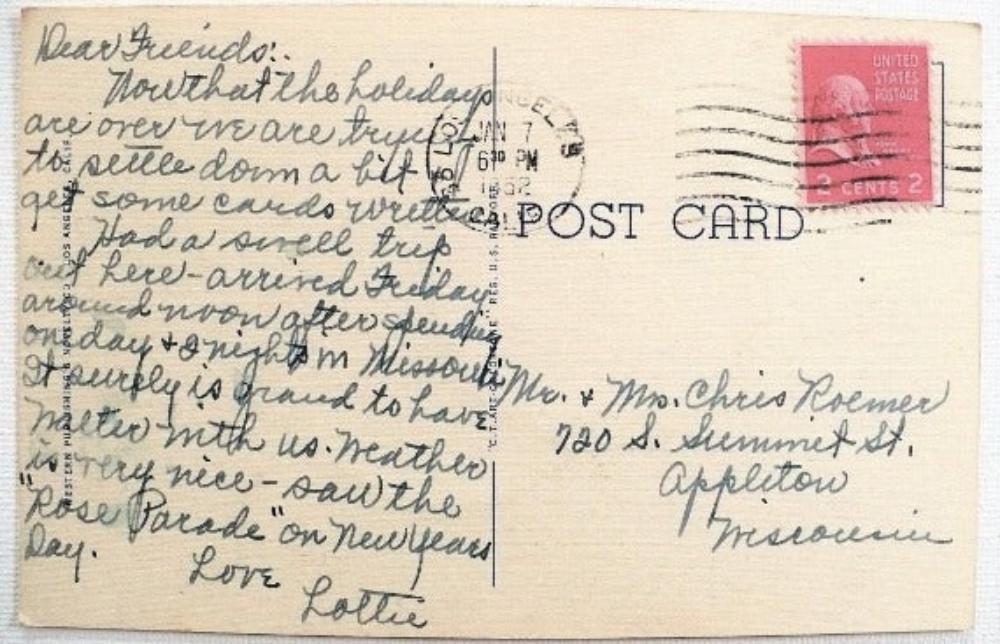 Dear Friends:
Now that the holidays
are over we are trying
to settle down a bit &
get some cards written.
Had a swell trip
out here - arrived Friday
around noon after spending
one day & 2 nights in Missouri.
It surely is grand to have
Walter with us. Weather
is very nice - saw the
"Rose Parade" on New Years
Day.
Love
Lottie
JAN 7
6 30 PM
1952
CALIF
UNITED
STATES
POSTAGE
2 CENTS 2
POST CARD
Mr. & Mrs. Chris Roemer
720 S. Summit St.
Appleton
Wisconsin
WESTERN PUBLISHING & NOVELTY CO., LOS ANGELES, CALIF.
REG. U.S.